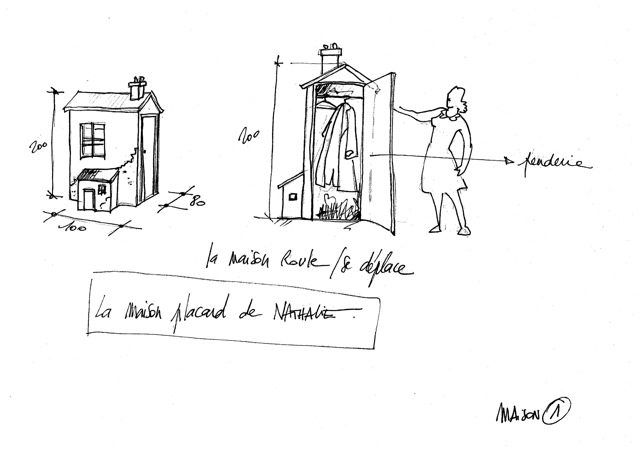 200
100
80
200
penderie
la maison Roule / se déplace
La maison placard de NATHALIE.
MAISON 1